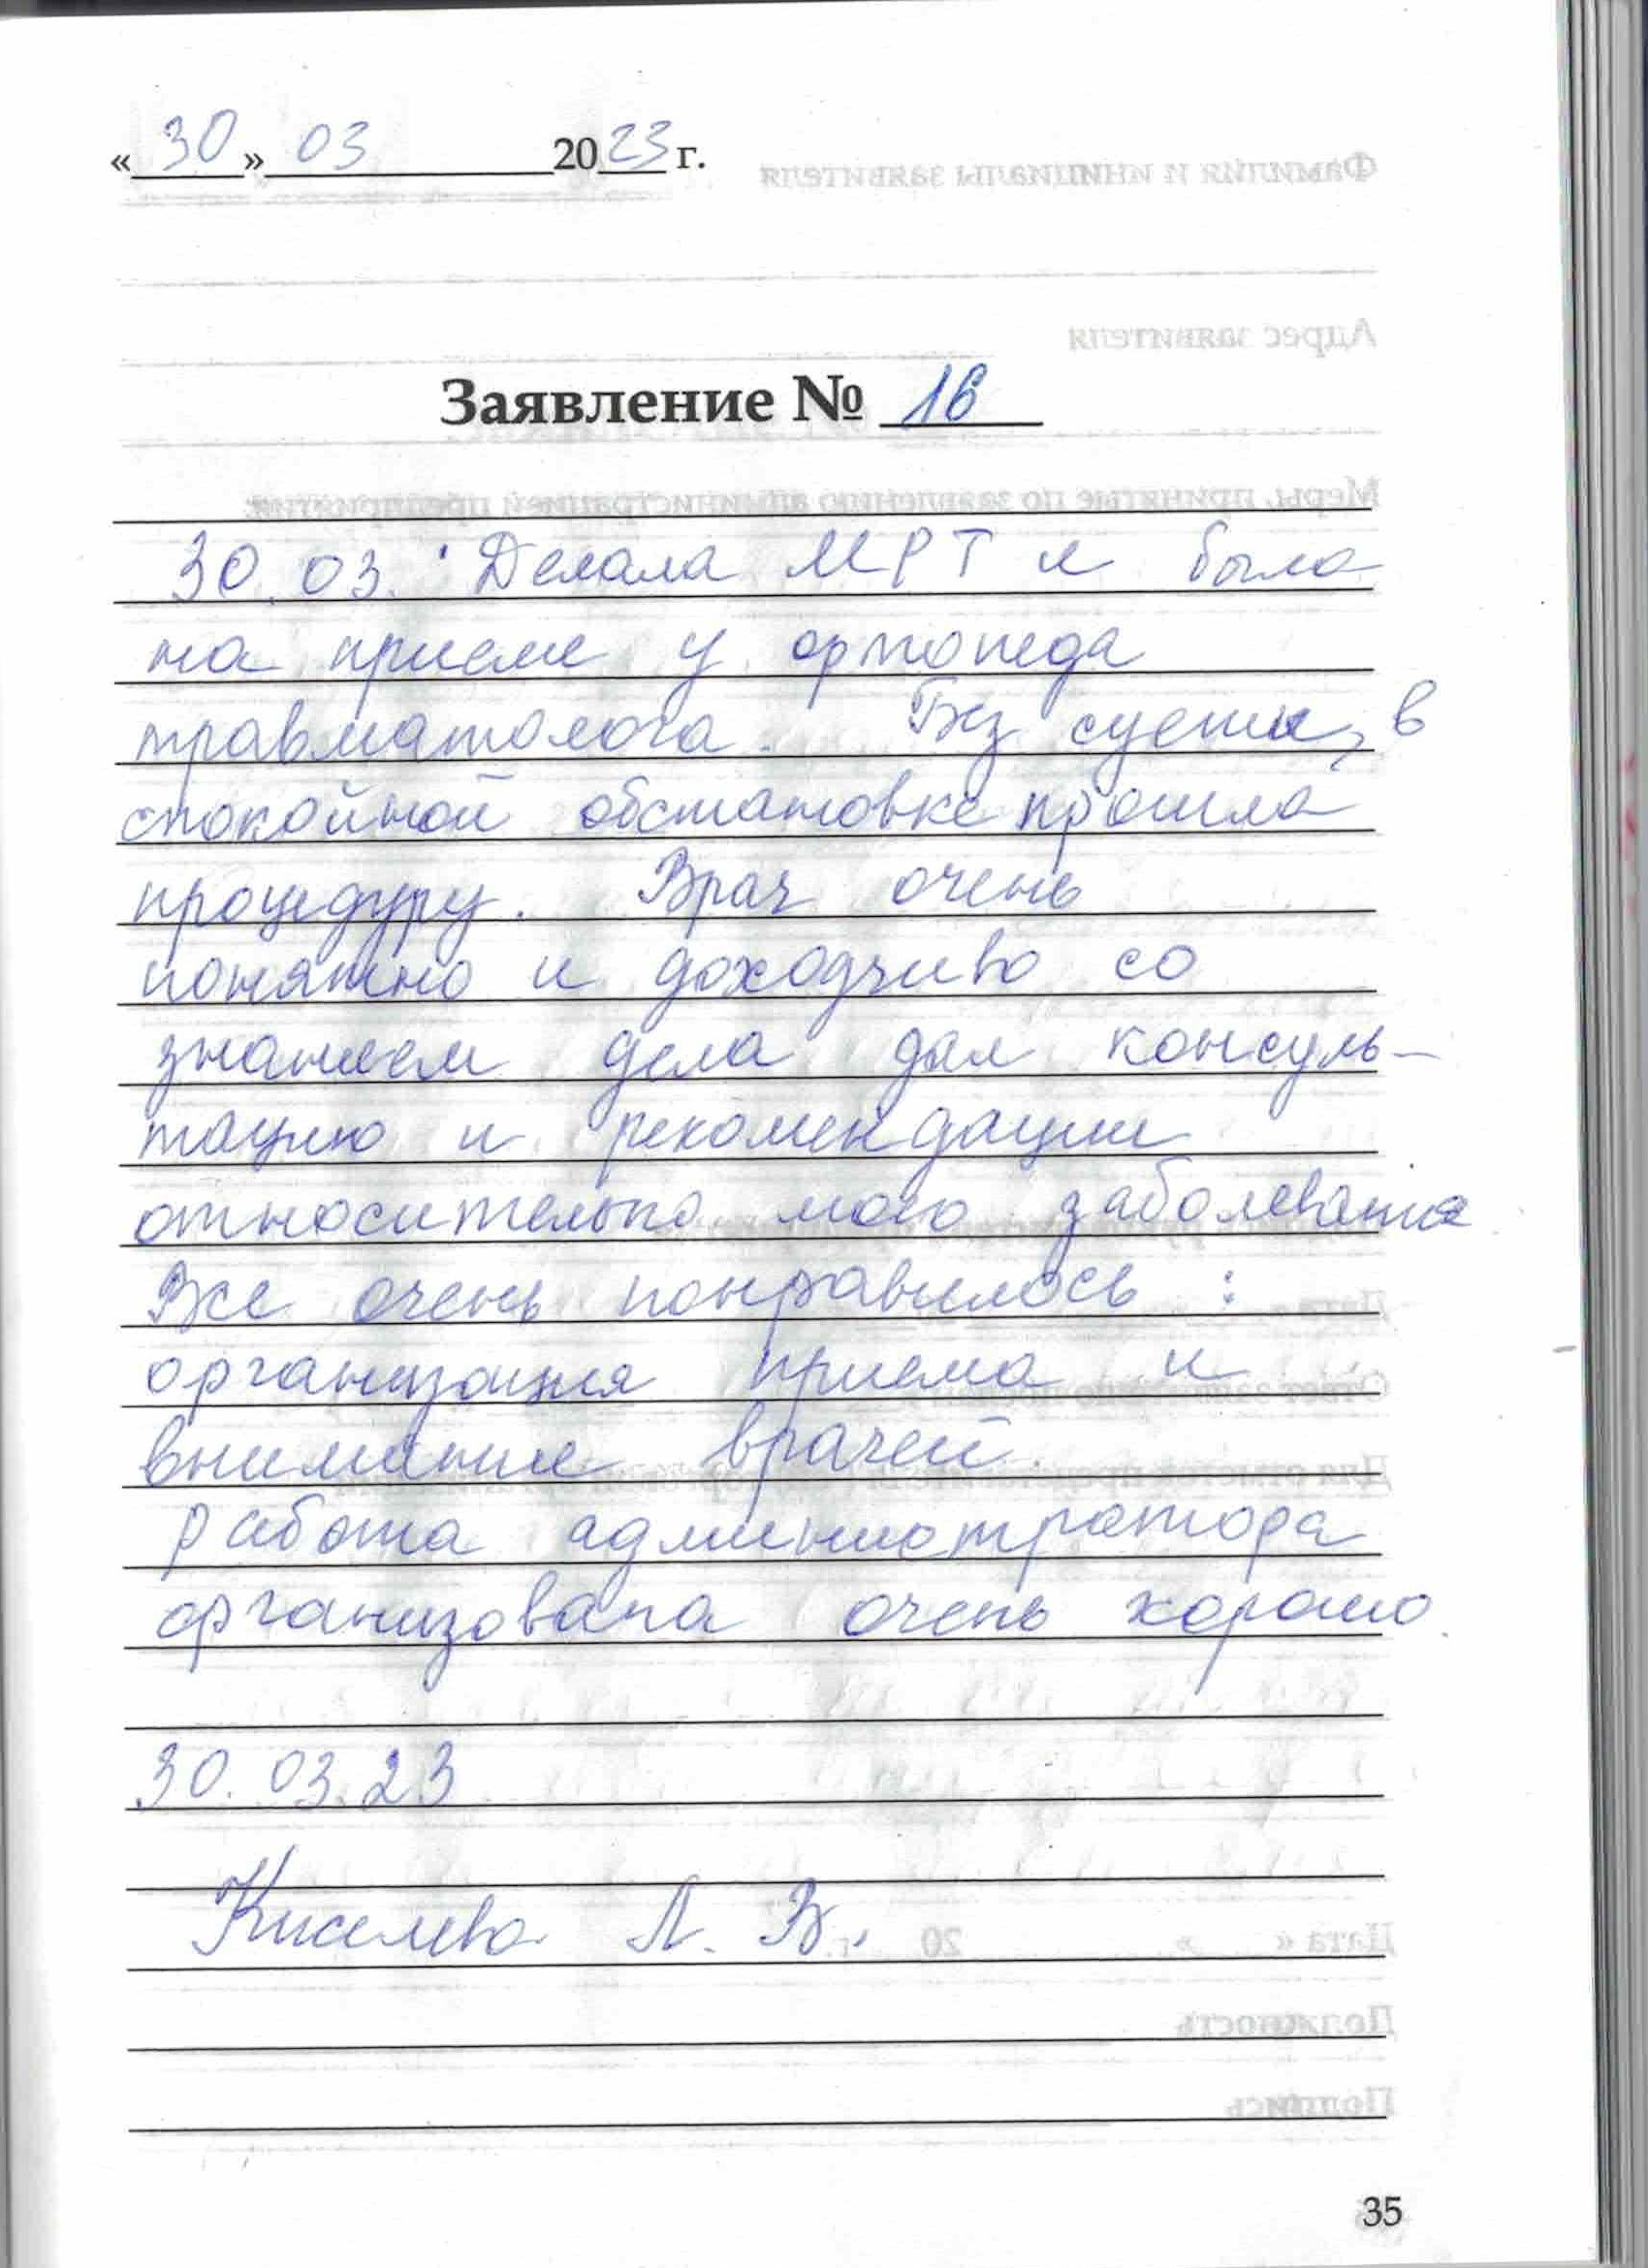 «30» 03 2023 г.
Заявление № 16
30.03. Делала МРТ и была
на приеме у ортопеда
травматолога. Без суеты, в
спокойной обстановке прошла
процедуру. Врач очень
понятно и доходчиво со
знанием дела дал консуль-
тацию и рекомендации
относительно моего заболевания
Все очень понравилось :
организация приема и
внимание врачей.
Работа администратора
организована очень хорошо.
30.03.23
Киселева Л. В.
35